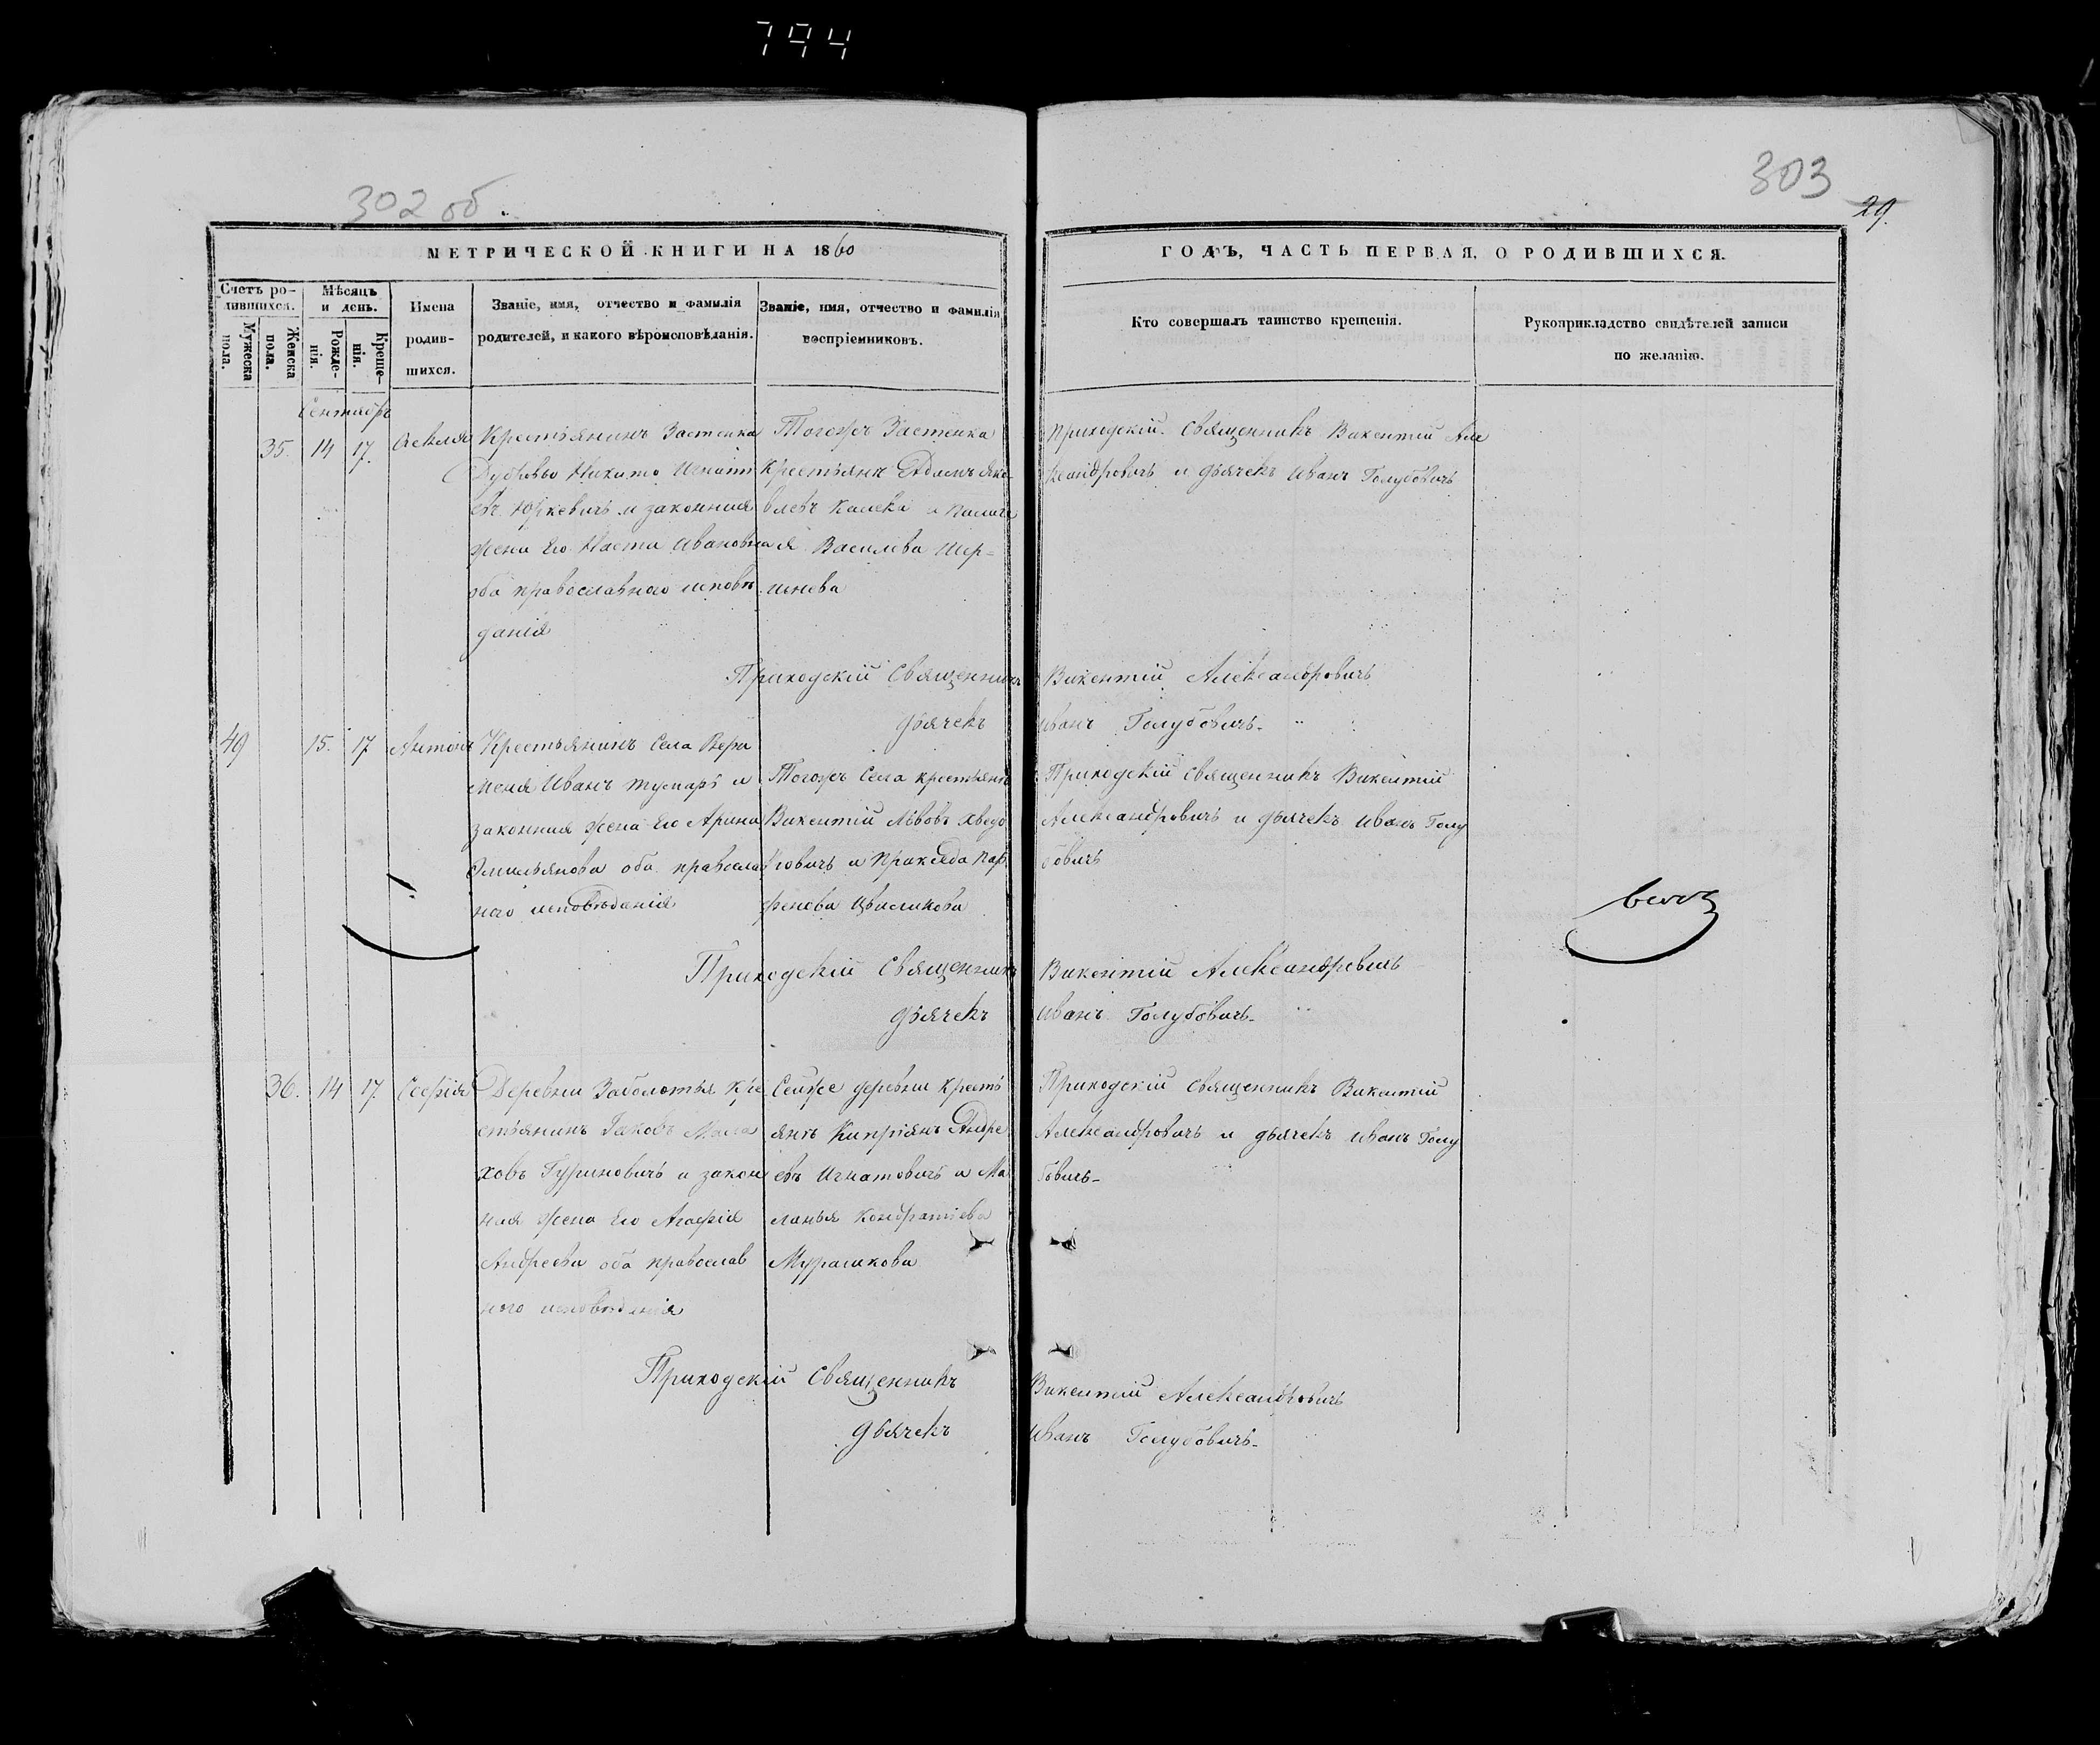 794
302 об.
303
29.
МЕТРИЧЕСКОЙ КНИГИ НА 1860
ГОДЪ, ЧАСТЬ ПЕРВАЯ, О РОДИВШИХСЯ.
Счетъ родившихся.
Мужеска пола.
Женска пола.
Мѣсяцъ и день.
Рожденія.
Крещенія.
Имена родившихся.
Званіе, имя, отчество и фамилія родителей, и какого вѣроисповѣданія.
Званіе, имя, отчество и фамилія воспріемниковъ.
Кто совершалъ таинство крещенія.
Рукоприкладство свидѣтелей записи по желанію.
Сентябрь
35. 14 17.
Крестьянинъ Застенка
Никита Игнатіевъ Юркевичъ и законная
жена Его Настя Ивановна
оба православнаго исповѣданія
Тогожъ Застенка
Крестьянъ Адамъ Яковлевъ Калека и
Василева
Приходскій Священникъ Викентій Александровичъ и дьячекъ Иванъ Голубовичъ
Приходскій Священникъ Викентій Александровичъ
дьячекъ Иванъ Голубовичъ
49 15. 17 Антонъ
Крестьянинъ Села Веременя Иванъ и
законная жена Его Арина
Омильянова оба православнаго исповѣданія
Тогожъ Села крестьянъ
Викентій Львовъ и
Праксѣда Парфенова
Приходскій священникъ Викентій
Александровичъ и дьячекъ Иванъ Голубовичъ
Приходскій Священникъ Викентій Александровичъ
дьячекъ Иванъ Голубовичъ
36. 14 17. Софія
Деревни Заболотья Крестьянинъ Іаковъ
Гуриновичъ и законная жена Его Агафія
Андреева оба православнаго исповѣданія
Сейже деревни крестьянъ Кипріянъ Андреевъ Игнатовичъ и Маланья Кондратіева
Мурашкова
Приходскій священникъ Викентій
Александровичъ и дьячекъ Иванъ Голубовичъ
Приходскій Священникъ Викентій Александровичъ
дьячекъ Иванъ Голубовичъ